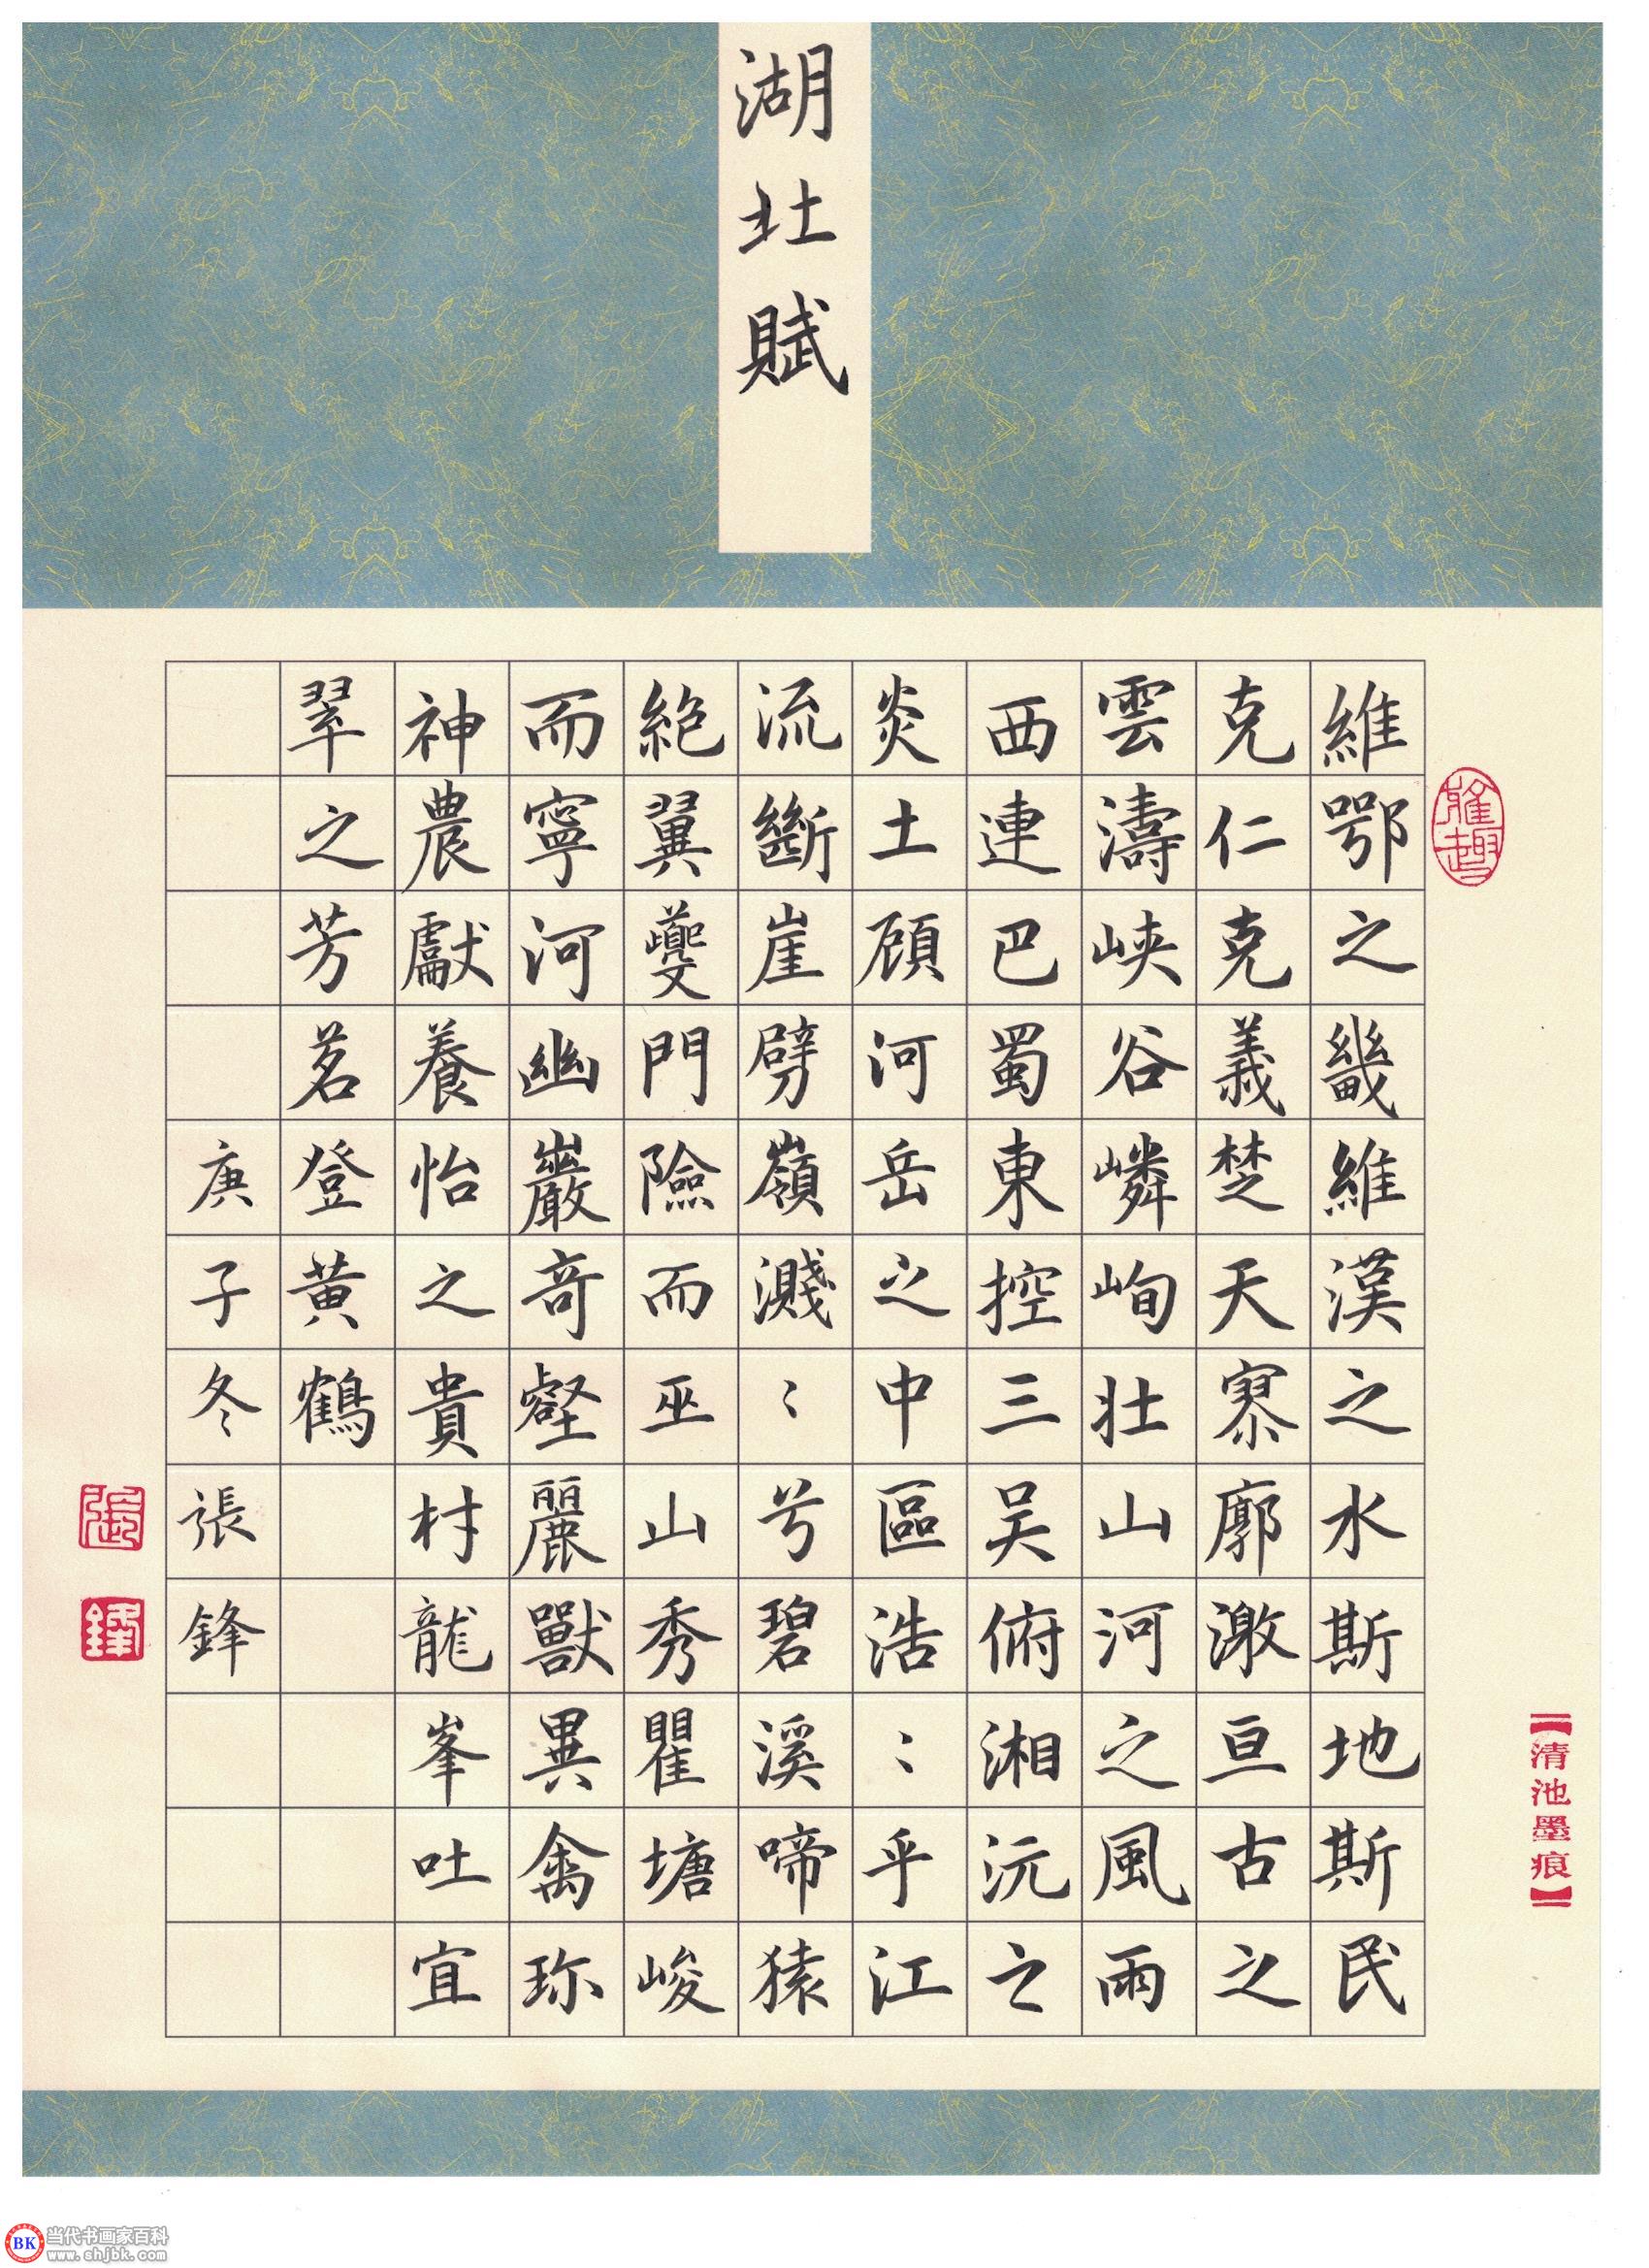 湖北賦
雅趣
維鄂之畿維漢之水斯地斯民
克仁克義楚天寥廓激亘古之
雲濤峽谷嶙峋壯山河之風雨
西連巴蜀東控三吴俯湘沅之
炎土頋河岳之中區浩〻乎江
流斷崖劈嶺濺〻兮碧溪啼猿
絶翼夔門險而巫山秀瞿塘峻
而寧河幽巖奇壑麗獸異禽珍
神農獻養怡之貴村龍峯吐宜
翠之芳茗登黄鶴
庚子冬張鋒
張
鋒
【清池墨痕】
BK 当代书画家百科
www.shjbk.com